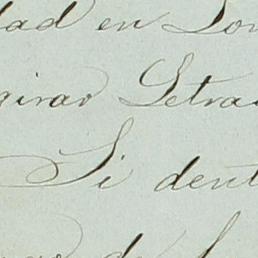 dad en Lon
girar Letra
Si dent
de